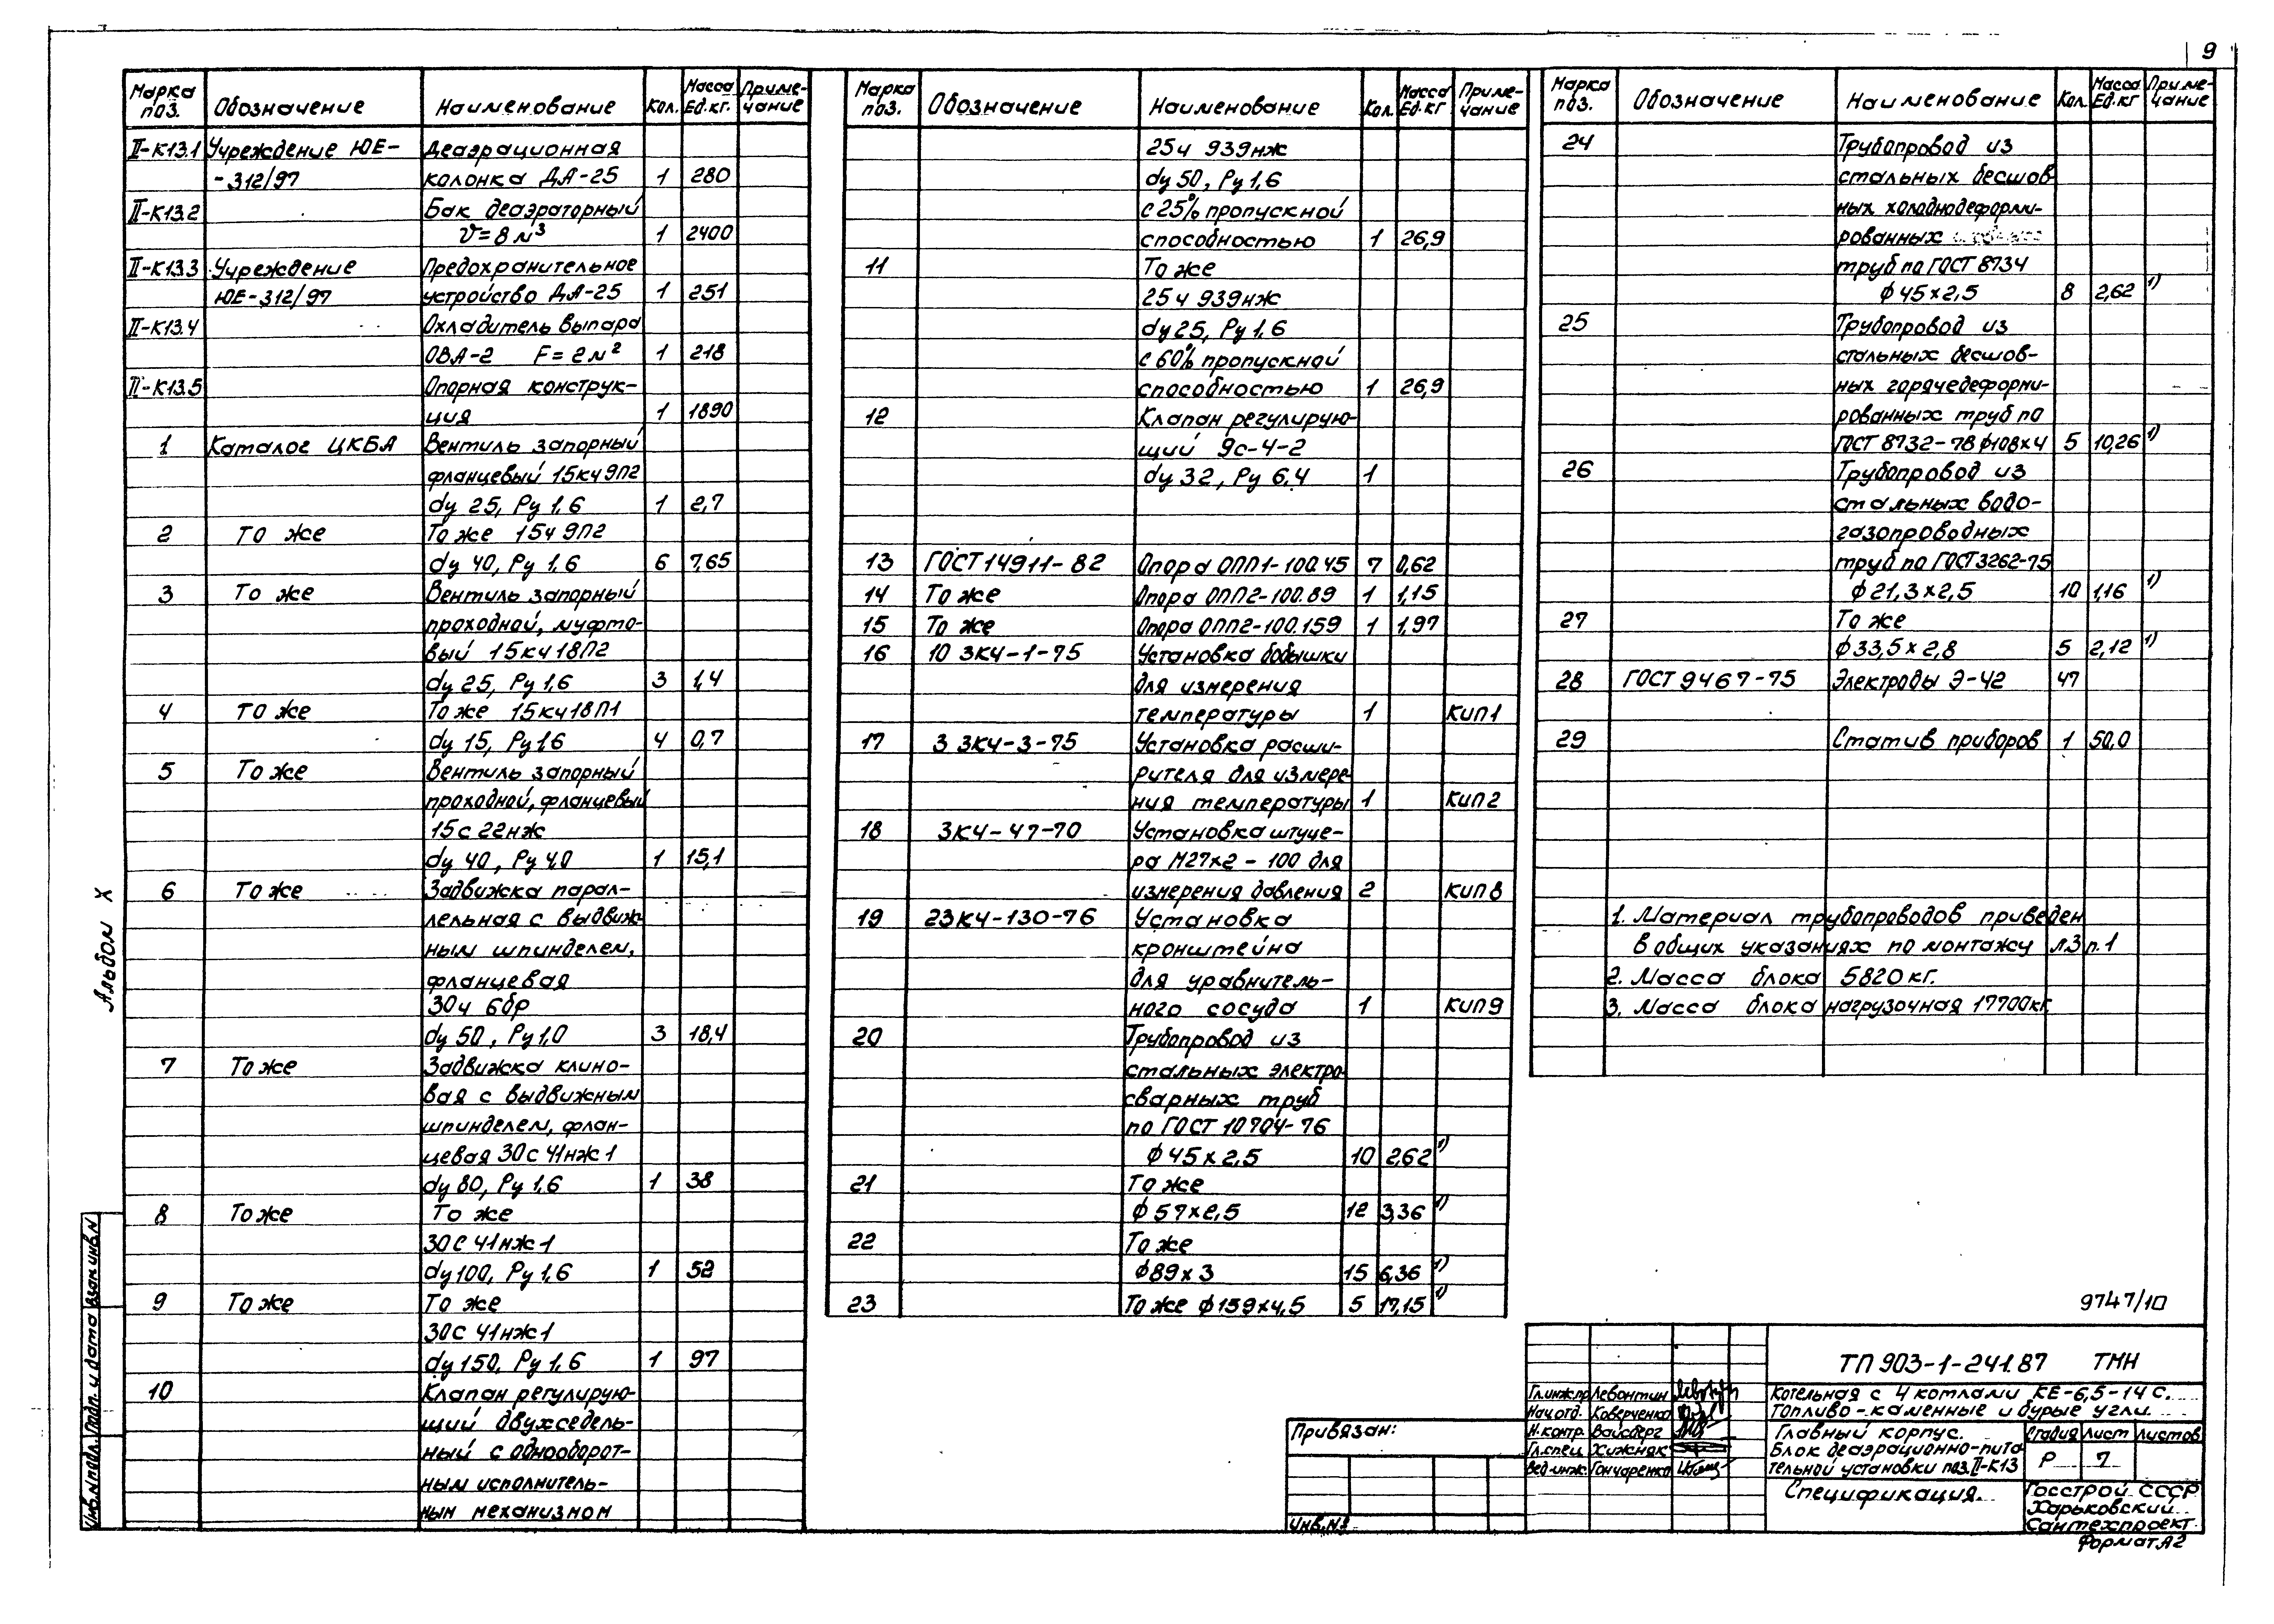 9
Марка поз. Обозначение Наименование Кол. Масса Ед.кг. Приме-чание
II-К13.1 Учреждение ЮЕ- Деаэрационная
-312/97 колонка ДА-25 1 280
II-К13.2 Бак деаэраторный
V=8м³ 1 2400
II-К13.3 Учреждение Предохранительное
ЮЕ-312/97 устройство ДА-25 1 251
II-К13.4 Охладитель выпара
ОВА-2 F=2м² 1 218
II-К13.5 Опорная конструк-
ция 1 1890
1 Каталог ЦКБА Вентиль запорный
фланцевый 15кч9П2
dy 25, Py 1,6 1 2,7
2 То же То же 15ч 9П2
dy 40, Py 1,6 6 7,65
3 То же Вентиль запорный
проходной, муфто-
вый 15кч18П2
dy 25, Py 1,6 3 1,4
4 То же То же 15кч18П1
dy 15, Py 1,6 4 0,7
5 То же Вентиль запорный
проходной, фланцевый
15с22нж
dy 40, Py 4,0 1 15,1
6 То же Задвижка парал-
лельная с выдвиж-
ным шпинделем,
фланцевая
30ч 6бр
dy 50, Py 1,0 3 18,4
7 То же Задвижка клино-
вая с выдвижным
шпинделем, флан-
цевая 30с41нж1
dy 80, Py 1,6 1 38
8 То же То же
30с41нж1
dy 100, Py 1,6 1 52
9 То же То же
30с41нж1
dy 150, Py 1,6 1 97
10 Клапан регулирую-
щий двухседель-
ный с однооборот-
ным исполнитель-
ным механизмом
Марка поз. Обозначение Наименование Кол. Масса Ед.кг Приме-чание
25ч 939нж
dy 50, Py 1,6
с 25% пропускной
способностью 1 26,9
11 То же
25ч 939нж
dy 25, Py 1,6
с 60% пропускной
способностью 1 26,9
12 Клапан регулирую-
щий 9с-4-2
dy 32, Py 6,4 1
13 ГОСТ14911-82 Опора ОПП1-100.45 7 0,62
14 То же Опора ОПП2-100.89 1 1,15
15 То же Опора ОПП2-100.159 1 1,97
16 10 ЗК4-1-75 Установка бобышки
для измерения
температуры 1 КИП1
17 3 ЗК4-3-75 Установка расши-
рителя для измере-
ния температуры 1 КИП2
18 ЗК4-47-70 Установка штуце-
ра М27х2-100 для
измерения давления 2 КИП8
19 23К4-130-76 Установка
кронштейна
для уравнитель-
ного сосуда 1 КИП9
20 Трубопровод из
стальных электро-
сварных труб
по ГОСТ 10704-76
ф45х2,5 10 2,62 1)
21 То же
ф57х2,5 12 3,36 1)
22 То же
ф89х3 15 6,36 1)
23 То же ф159х4,5 5 17,15 1)
Марка поз. Обозначение Наименование Кол. Масса Ед.кг Приме-чание
24 Трубопровод из
стальных бесшов
ных холоднодеформи-
рованных
труб по ГОСТ 8734
ф45х2,5 8 2,62 1)
25 Трубопровод из
стальных бесшов-
ных горячедеформи-
рованных труб по
ГОСТ 8732-78 ф108х4 5 10,26 1)
26 Трубопровод из
стальных водо-
газопроводных
труб по ГОСТ3262-75
ф21,3х2,5 10 1,16 1)
27 То же
ф33,5х2,8 5 2,12 1)
28 ГОСТ 9467-75 Электроды Э-42 47
29 Статив приборов 1 50,0
1. Материал трубопроводов приведен
в общих указаниях по монтажу л.3 п.1
2. Масса блока 5820кг.
3. Масса блока нагрузочная 17700кг.
Альбом X
Инв.№подл. Подп. и дата Взам инв.№
9747/10
ТП 903-1-241.87 ТМН
Котельная с 4 котлами КЕ-6,5-14С.
Топливо-каменные и бурые угли.
Гл.инж.пр Левонтин
Нач.отд. Коверченко
Н.контр. Вайсберг
Гл.спец. Хижняк
Вед.инж. Гончаренко
Главный корпус.
Блок деаэрационно-пита
тельной установки поз.II-К13
Стадия Лист Листов
Р 7
Спецификация.
Госстрой СССР
Харьковский
Сантехпроект
Привязан:
Инв.№
Формат А2